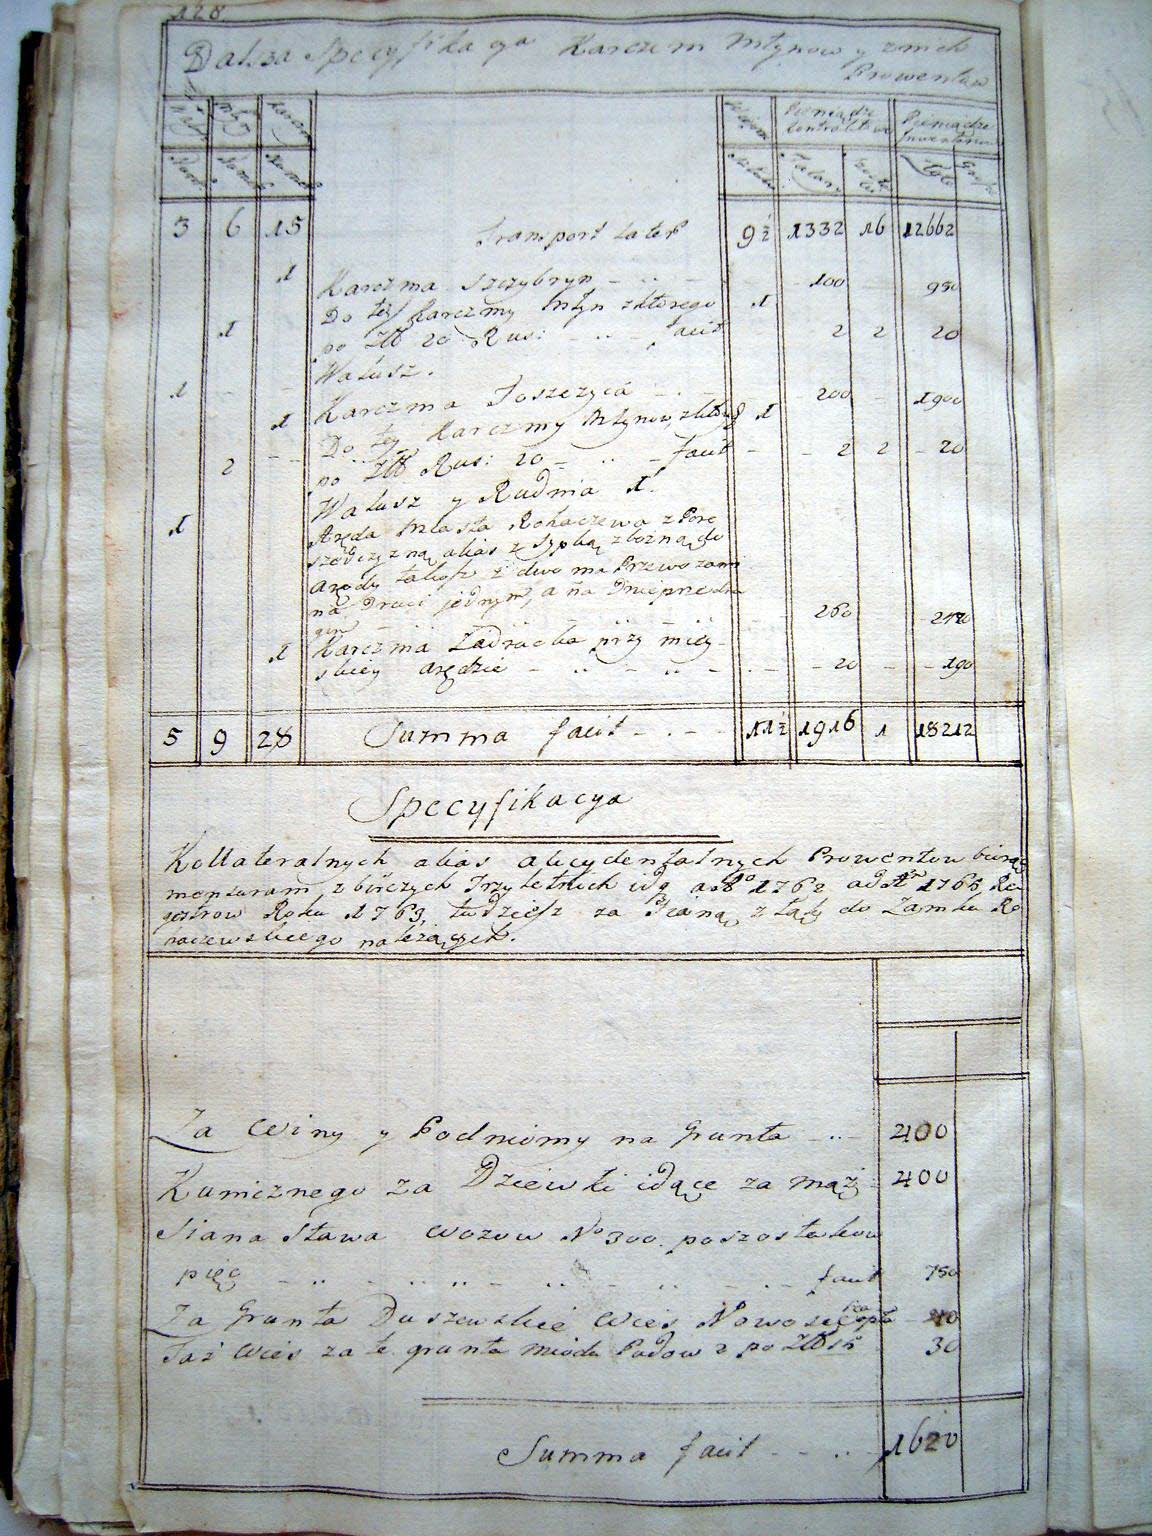 128
Dalsza Specyfikacya Karczem Młynow y znich
Prowentow
Pieniądze Kontraktowe Pieniądze Inwentarzowe
3 6 15 Transport Lateris 9½ 1332 16 12662
1 Karczma Szczybryn 100 950
Do tey Karczmy Młyn zktorego 1
1 po Złł 20 Rus: facit 2 2 20
1 Wałusz.
1 Karczma Toszczyca 200 1900
Do tey Karczmy Młynow zktorych 1
2 po Złł Rus: 20 facit 2 2 20
1 Wałusz y Rudnia 1.
Aręda Miasta Rohaczewa z
alias z sypką zbożną do
Arędy także z dwoma Przewozami
na Druci jednym, a na Dnieprze
gim 260
1 Karczma Zadrucka przy miey-
skiey arędzie 20 190
5 9 28 Summa facit 11½ 1916 1 18212
Specyfikacya
Kollateralnych alias akcydentalnych Prowentow biorąc
mensuram z bierczych Trzyletnich idq a 1762 ad 1765 Re-
gestrow Roku 1763, tudziesz za Siano z Łąk do Zamku Ro-
haczewskiego należących.
Za Winy y Podniomy na Grunta 400
Kunicznego za Dziewki idące za mąż 400
Siana Stawa Wozow No 300. po szostakow
pięć facit 750
Za Grunta Duszewskie Wies Nowosiołki opła 40
Taż Wies za te grunta Miodu Pudow 2 po Złł 15 30
Summa facit 1620